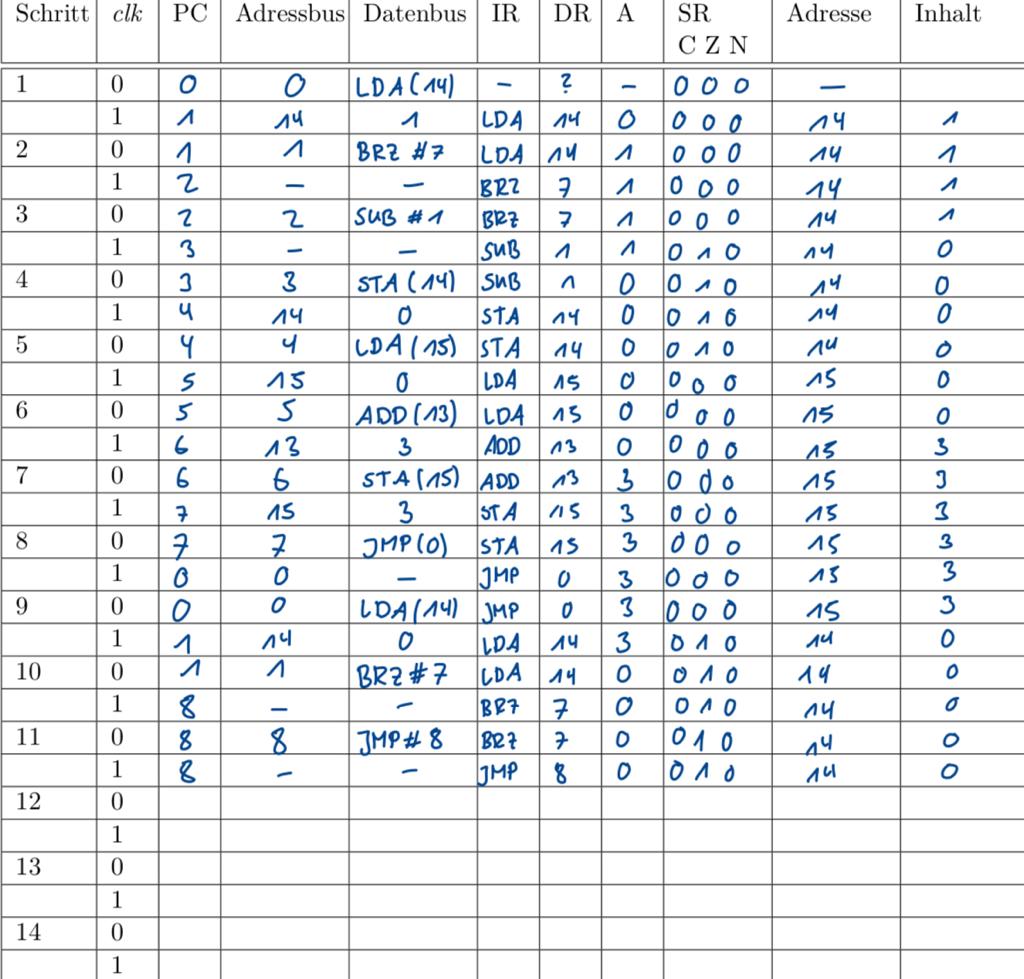 Schritt clk PC Adressbus Datenbus IR DR A SR Adresse Inhalt
C Z N
1 0 0 0 LDA(14) – ? – 0 0 0 –
1 1 14 1 LDA 14 0 0 0 0 14 1
2 0 1 1 BRZ #7 LDA 14 1 0 0 0 14 1
1 2 – – BRZ 7 1 0 0 0 14 1
3 0 2 2 SUB #1 BRZ 7 1 0 0 0 14 1
1 3 – – SUB 1 1 0 1 0 14 0
4 0 3 3 STA(14) SUB 1 0 0 1 0 14 0
1 4 14 0 STA 14 0 0 1 0 14 0
5 0 4 4 LDA(15) STA 14 0 0 1 0 14 0
1 5 15 0 LDA 15 0 0 0 0 15 0
6 0 5 5 ADD(13) LDA 15 0 0 0 0 15 0
1 6 13 3 ADD 13 0 0 0 0 15 3
7 0 6 6 STA(15) ADD 13 3 0 0 0 15 3
1 7 15 3 STA 15 3 0 0 0 15 3
8 0 7 7 JMP(0) STA 15 3 0 0 0 15 3
1 0 0 – JMP 0 3 0 0 0 15 3
9 0 0 0 LDA(14) JMP 0 3 0 0 0 15 3
1 1 14 0 LDA 14 3 0 1 0 14 0
10 0 1 1 BRZ #7 LDA 14 0 0 1 0 14 0
1 8 – – BRZ 7 0 0 1 0 14 0
11 0 8 8 JMP# 8 BRZ 7 0 0 1 0 14 0
1 8 – – JMP 8 0 0 1 0 14 0
12 0
1
13 0
1
14 0
1